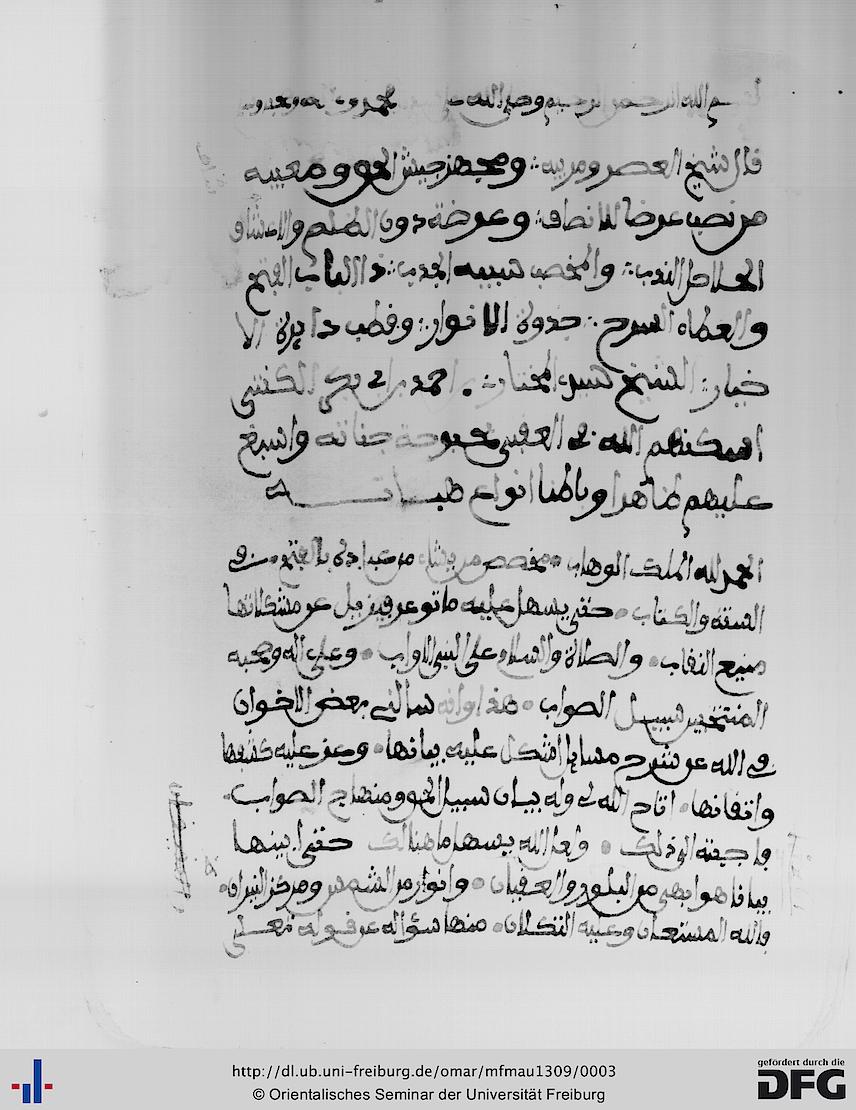 بسم الله الرحمن الرحيم وصلى الله على محمد وءاله وصحبه
قال شيخ العصر ومربيه ومجهز جيش الحق ومعبيه
من نصب عرضا للانصاف وعرضة دون الظلم والاعتساف
الحلاحل الندب والمخصب سيبه الجدب ذا الباب الفتح
والعطاء السرح جذوة الانوار وقطب دايرة الا
خيار الشيخ سيد المختار بن احمد بن ابي بكر الكنتي
اسكنهم الله في العقبى بحبوحة جناته واسبغ
عليهم ظاهرا وباطنا انواع هباته
الحمد لله الملك الوهاب مخصص من يشاء من عباده بالفتح في
السنة والكتاب حتى يسهل عليه ما توعر فيزيل عن مشكلاتها
منيع النقاب والصلاة والسلام على النبي الاواب وعلى اله وصحبه
المنتخبين سبيل الصواب هذا وانه سالني بعض الاخوان
في الله عن شرح مسايل اشكل عليه بيانها وعز عليه كشفها
واتقانها اتاح الله لي وله بيان سبيل الحق ومنهاج الصواب
فاجبته الى ذلك ولعل الله يسهل ما هنالك حتى ابينها
بيانا هو ابهى من البلور والعقيان وانور من الشمس ومركز النيران
فالله المستعان وعليه التكلان منها سؤاله عن قوله تعلى
http://dl.ub.uni-freiburg.de/omar/mfmau1309/0003
© Orientalisches Seminar der Universität Freiburg
gefördert durch die
DFG